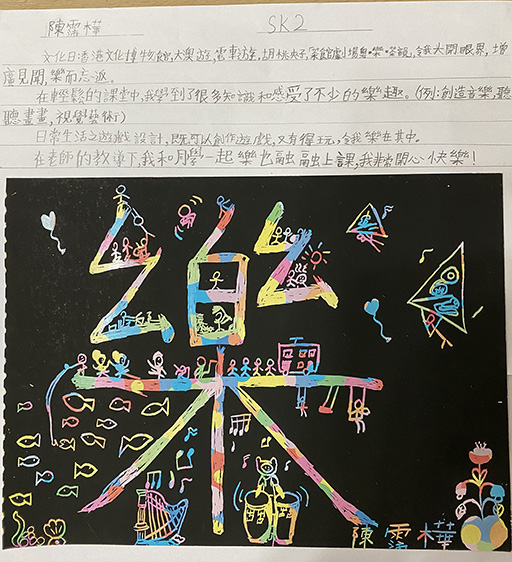 陳霈樺 SK2
文化日:香港文化博物館,大澳遊,電車遊,胡桃夾子,菜館劇場粵•樂•茶韻,令我大開眼界,增
廣見聞,樂而忘返。
在輕鬆的課堂中,我學到了很多知識和感受了不少的樂趣。(例:創造音樂,聽
聽畫畫,視覺藝術)
日常生活之遊戲設計,既可以創作遊戲,又有得玩,令我樂在其中。
在老師的教導下,我和同學一起樂也融融上課,我非常開心快樂!
樂
陳霈樺